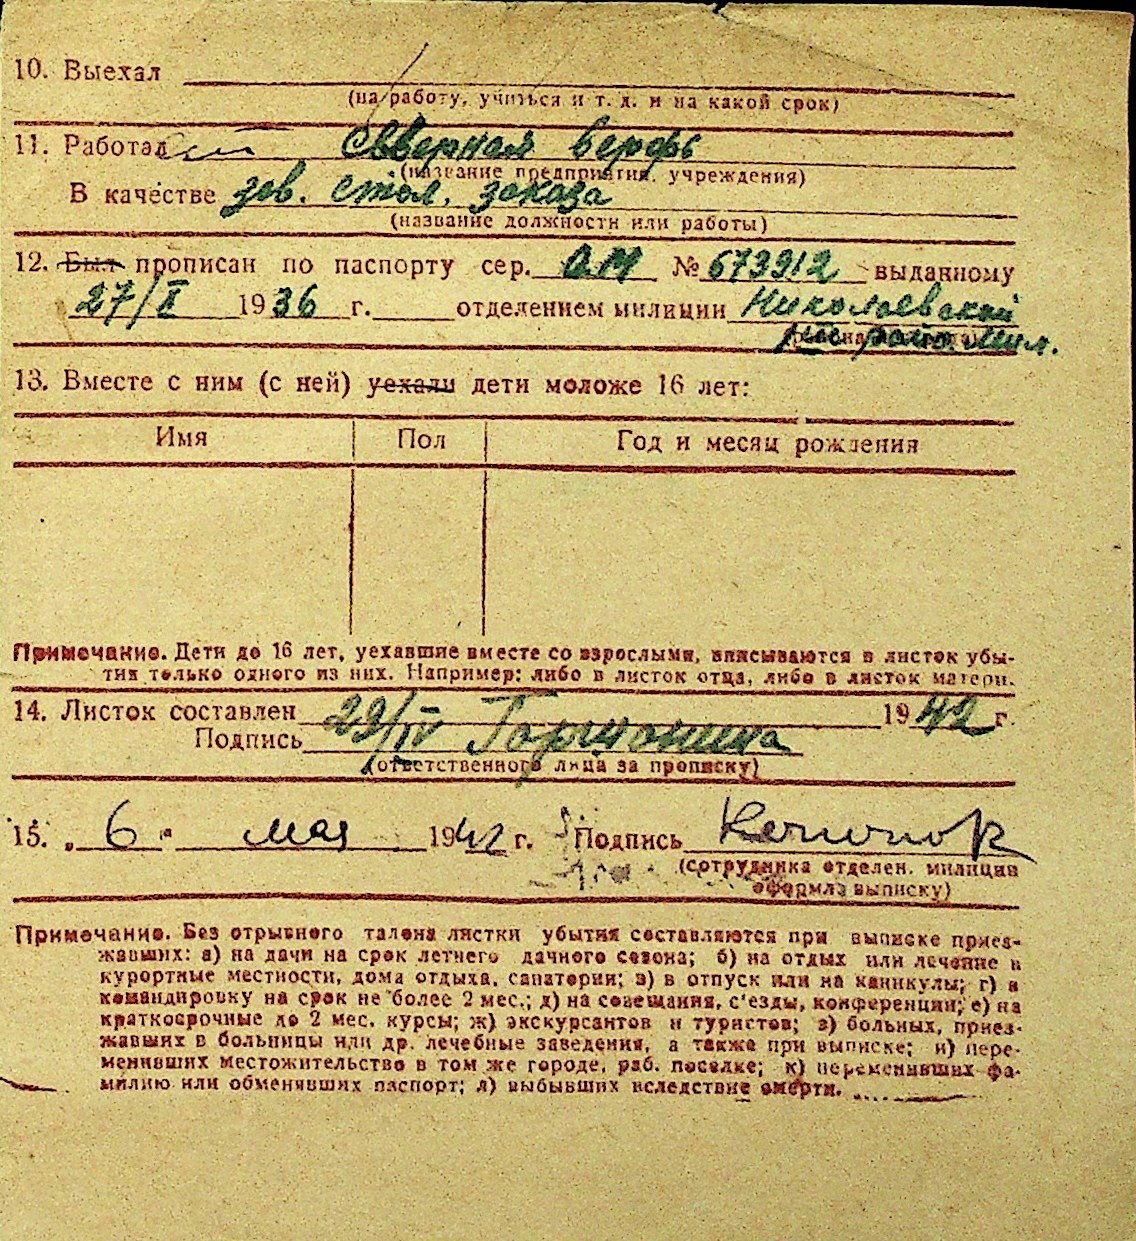 10. Выехал
(на работу, учиться и т. д. и на какой срок)
11. Работал Северная верфь
(название предприятия, учреждения)
В качестве зав. стол. заказа
(название должности или работы)
12. Был прописан по паспорту сер. ОМ № 673912 выданному
27/I 1936 г. отделением милиции Николаевской
мил.
13. Вместе с ним (с ней) уехали дети моложе 16 лет:
Имя Пол Год и месяц рождения
Примечание. Дети до 16 лет, уехавшие вместе со взрослыми, вписываются в листок убы-
тия только одного из них. Например: либо в листок отца, либо в листок матери.
14. Листок составлен 29/IV 1942 г.
Подпись
(ответственного лица за прописку)
15. „6" мая 1942 г. Подпись
(сотрудника отделен. милиции
оформлa выписку)
Примечание. Без отрывного талона листки убытия составляются при выписке приез-
жавших: а) на дачи на срок летнего дачного сезона; б) на отдых или лечение в
курортные местности, дома отдыха, санатории; в) в отпуск или на каникулы; г) в
командировку на срок не более 2 мес.; д) на совещания, с'езды, конференции; е) на
краткосрочные до 2 мес. курсы; ж) экскурсантов и туристов; з) больных, приез-
жавших в больницы или др. лечебные заведения, а также при выписке; и) пере-
менивших местожительство в том же городе, раб. поселке; к) переменивших фа-
милию или обменявших паспорт; л) выбывших вследствие смерти.